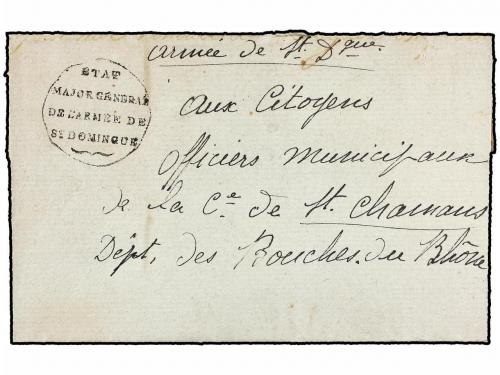 armée de St. Dgue.
ETAT
MAJOR GÉNÉRAL
DE L'ARMÉE DE
St DOMINGUE
aux Citoyens
officiers municipaux
de la Ce. de St. chamans
Dépt. des Bouches du Rhône